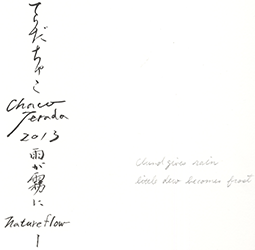 てらだちゃこ
Chaco
Terada
2013
雨が霧に
natureflow
Cloud gives rain
little dew becomes frost